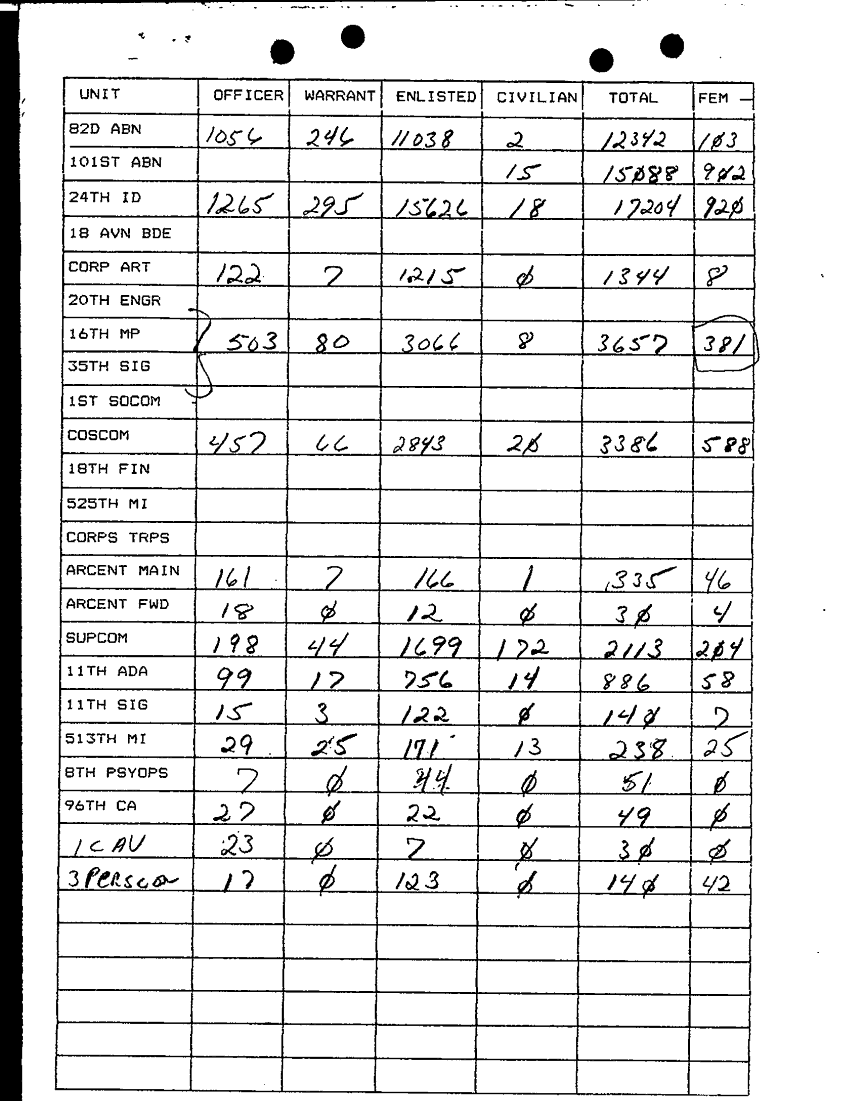 UNIT OFFICER WARRANT ENLISTED CIVILIAN TOTAL FEM —
82D ABN 1056 246 11038 2 12342 103
101ST ABN 15 15088 902
24TH ID 1265 295 15626 18 17204 920
18 AVN BDE
CORP ART 122 7 1215 0 1344 8
20TH ENGR
16TH MP 503 80 3066 8 3657 381
35TH SIG
1ST SOCOM
COSCOM 457 66 2843 20 3386 588
18TH FIN
525TH MI
CORPS TRPS
ARCENT MAIN 161 7 166 1 335 46
ARCENT FWD 18 0 12 0 30 4
SUPCOM 198 44 1699 172 2113 204
11TH ADA 99 17 756 14 886 58
11TH SIG 15 3 122 0 140 7
513TH MI 29 25 171 13 238 25
8TH PSYOPS 7 0 44 0 51 0
96TH CA 27 0 22 0 49 0
1 CAV 23 0 7 0 30 0
3 PERSCOM 17 0 123 0 140 42